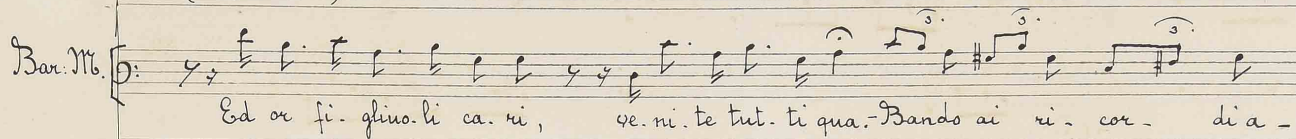 Bar: M.
3. 3. 3.
Ed or fi-gliuo-li ca-ri, ve-ni-te tut-ti qua.-Bando ai ri-cor-di a-